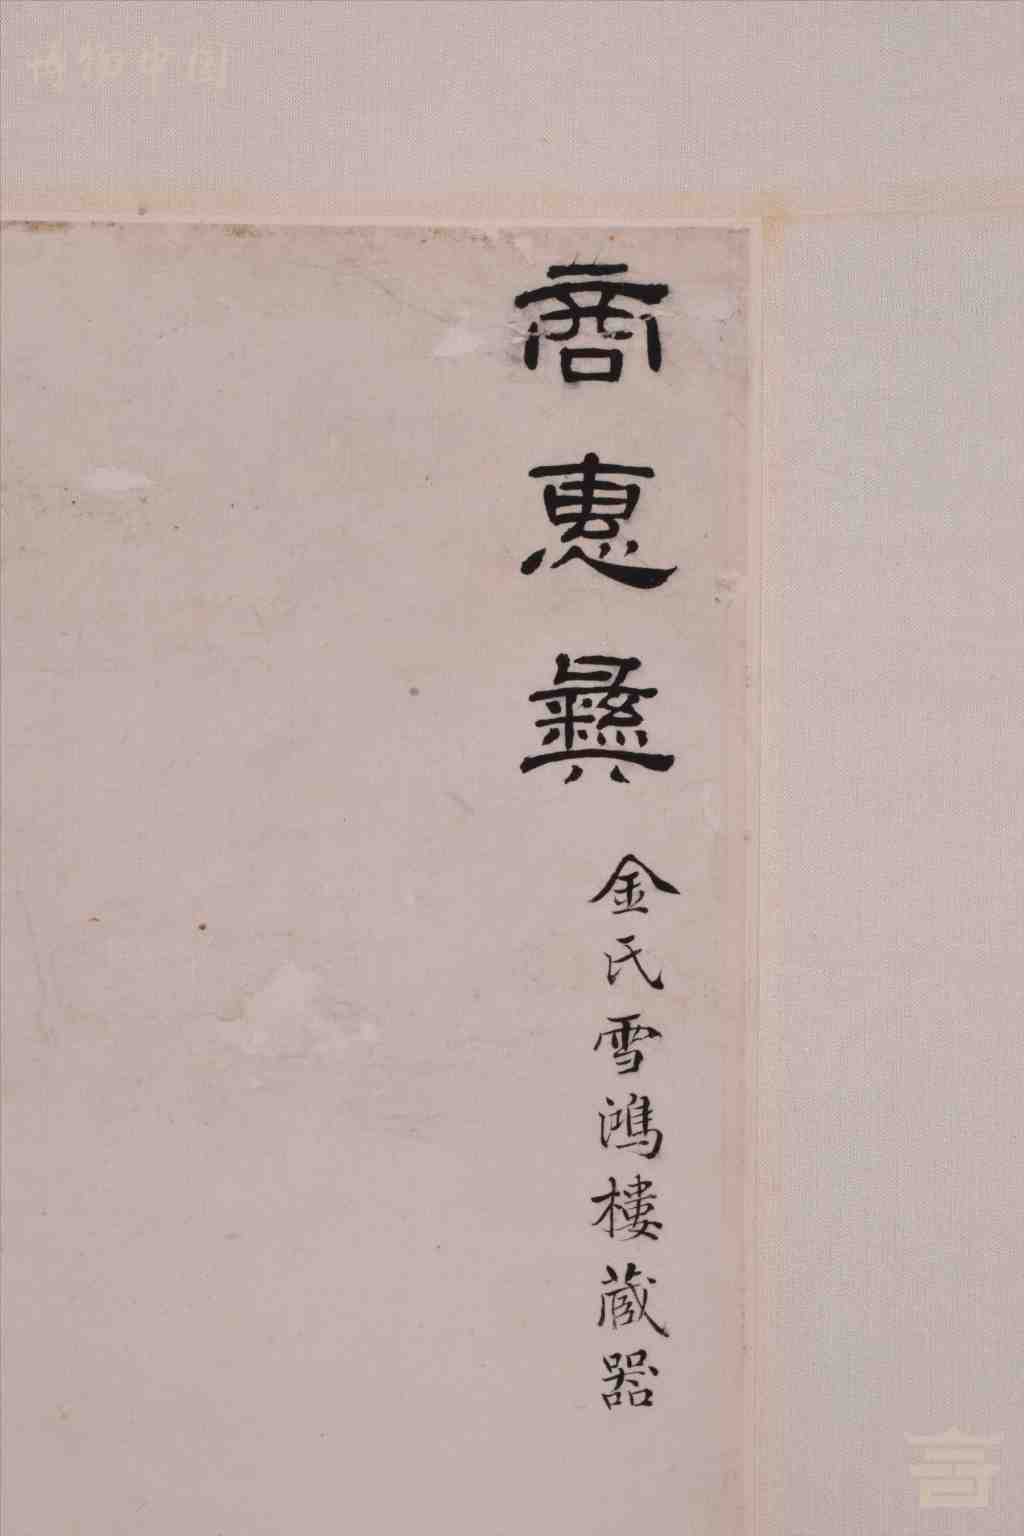 博物中国
商惠彝
金氏雪鴻樓藏器